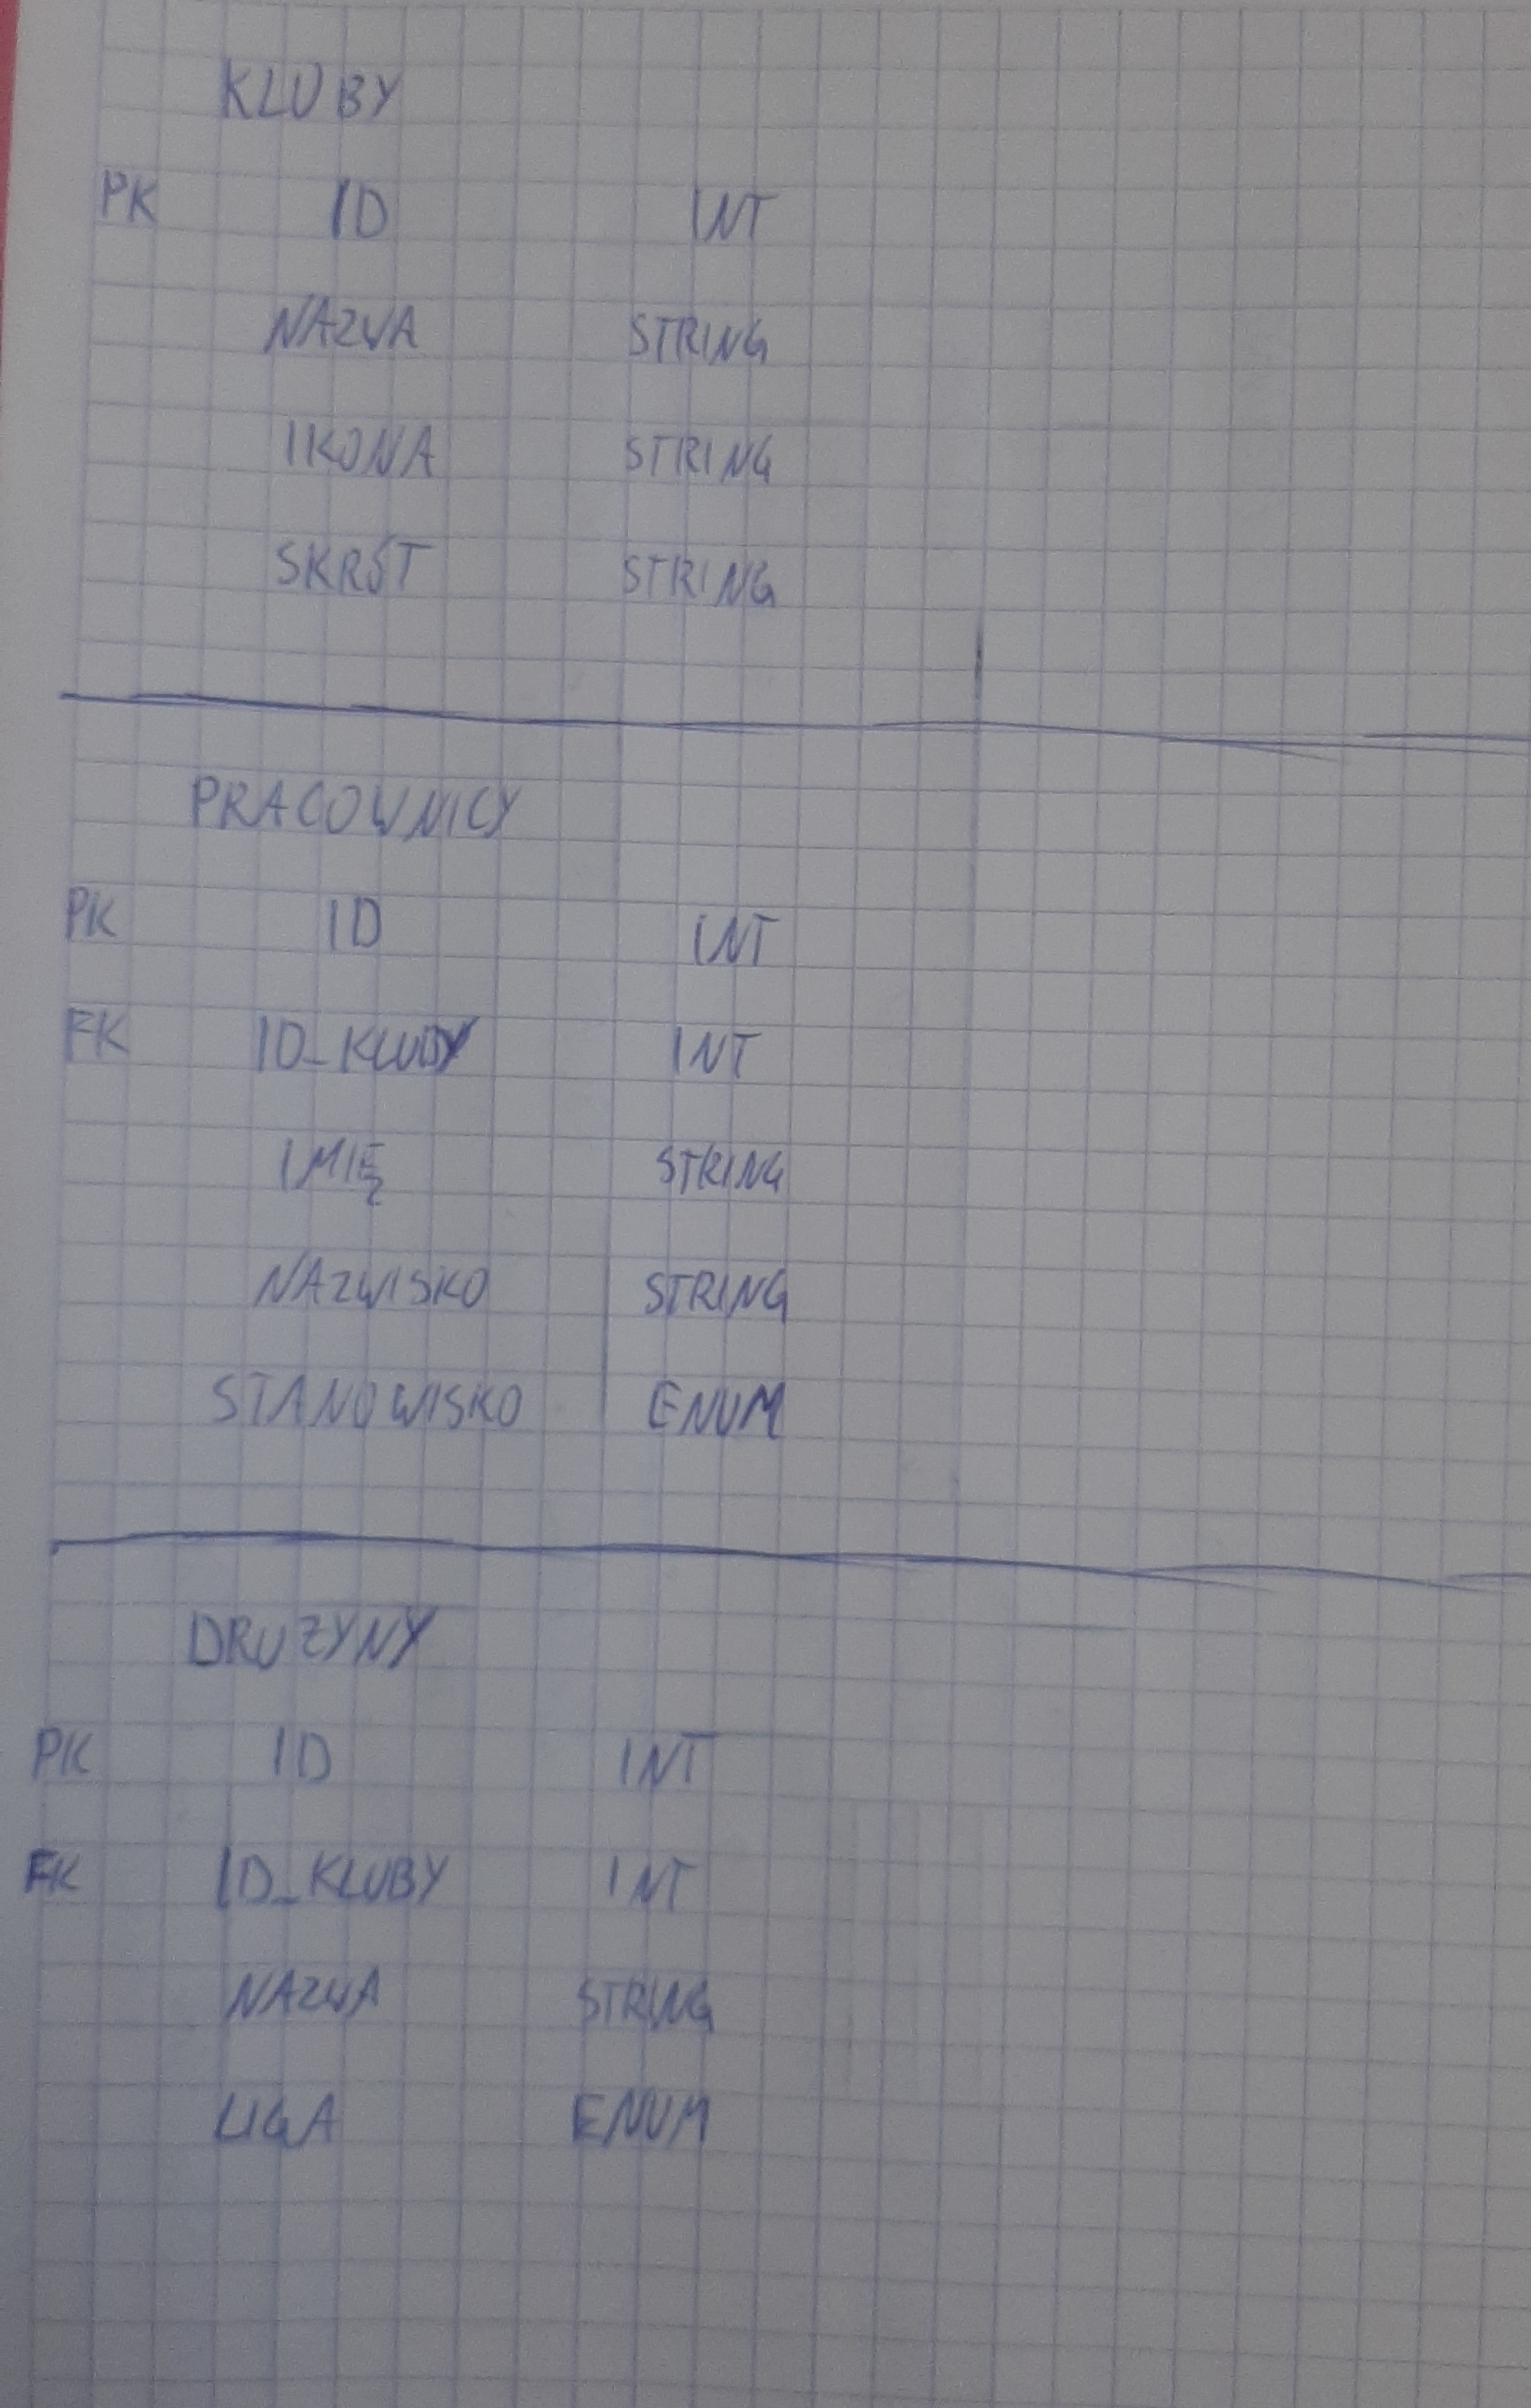 KLUBY
PK ID INT
NAZWA STRING
IKONA STRING
SKRÓT STRING
PRACOWNICY
PK ID INT
FK ID_KLUBY INT
IMIĘ STRING
NAZWISKO STRING
STANOWISKO ENUM
DRUZYNY
PK ID INT
FK ID_KLUBY INT
NAZWA STRING
LIGA ENUM